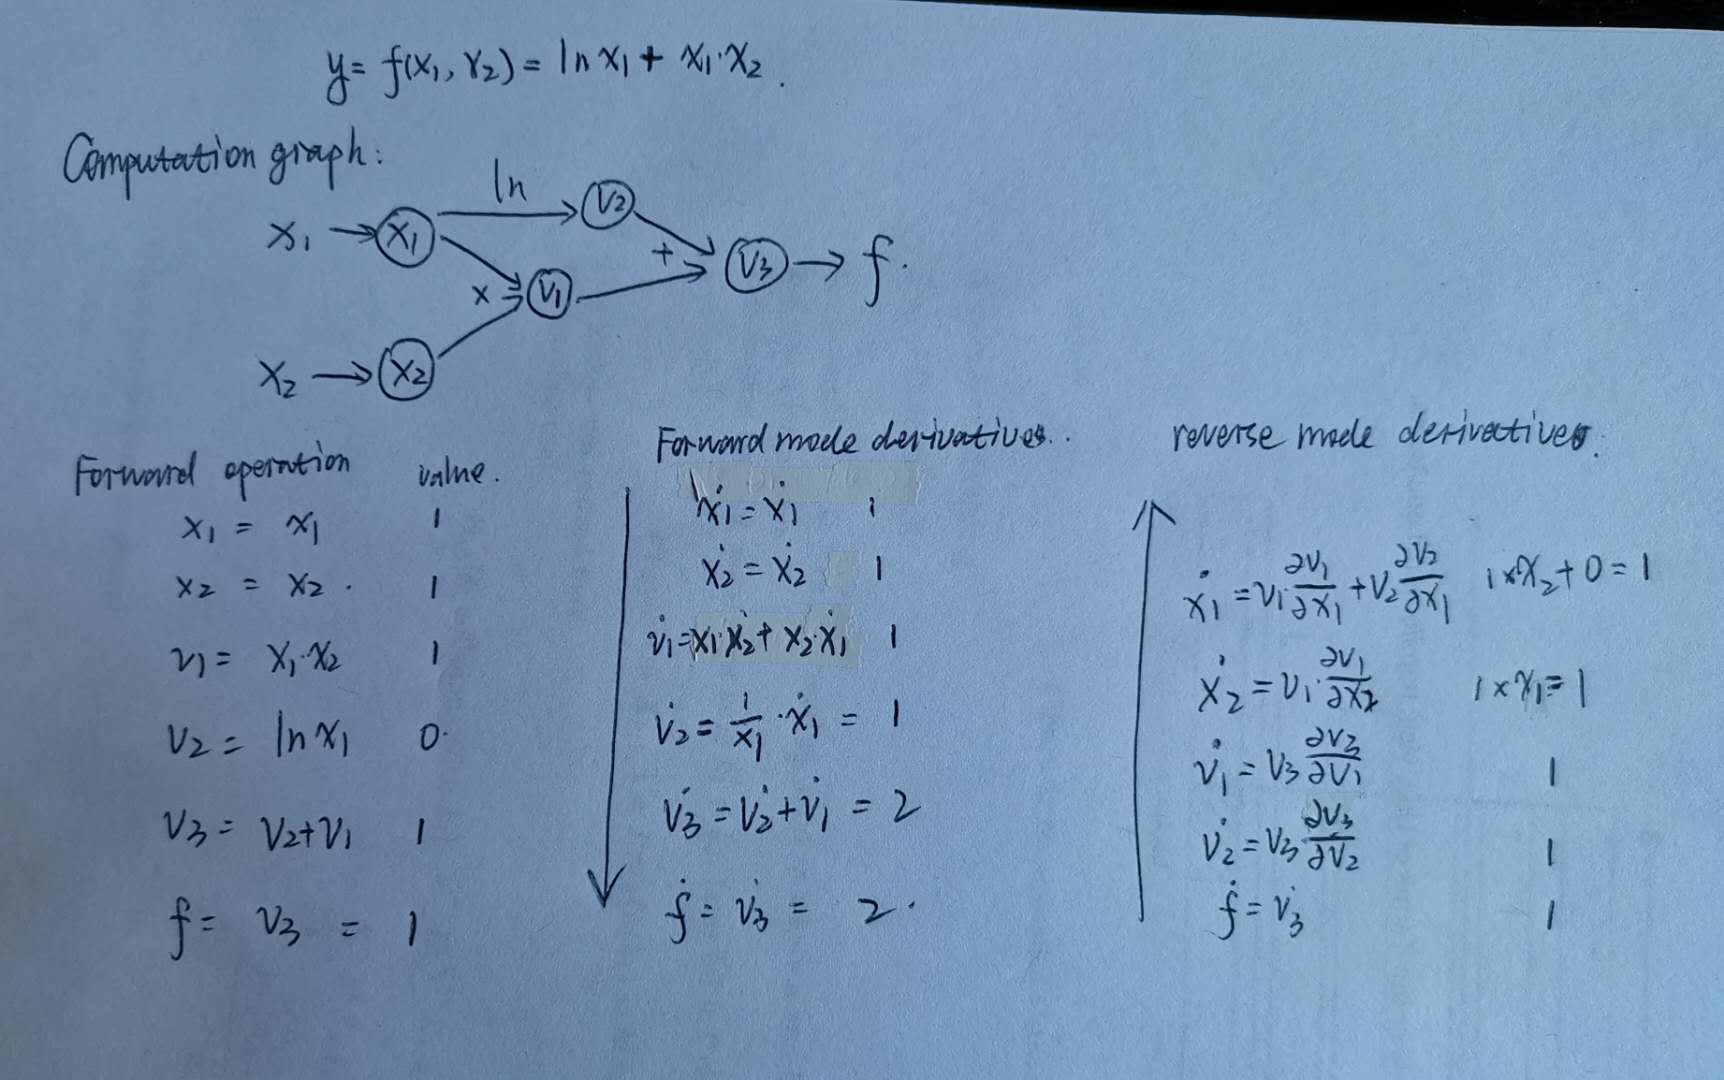 y = f(x₁, x₂) = ln x₁ + x₁·x₂.
Computation graph:
x₁ → x₁ ln → v₂
+ v₃ → f.
× v₁
x₂ → x₂
Forward operation value.
x₁ = x₁ 1
x₂ = x₂. 1
v₁ = x₁·x₂ 1
v₂ = ln x₁ 0.
v₃ = v₂+v₁ 1
f = v₃ = 1
Forward mode derivatives..
ẋ₁ = ẋ₁ 1
ẋ₂ = ẋ₂ 1
v̇₁ = x₁·ẋ₂ + x₂·ẋ₁ 1
v̇₂ = 1/x₁ · ẋ₁ = 1
v̇₃ = v̇₂ + v̇₁ = 2
ḟ = v̇₃ = 2.
reverse mode derivatives.
ẋ₁ = v₁·∂v₁/∂x₁ + v₂ ∂v₂/∂x₁ 1×x₂+0=1
ẋ₂ = v₁·∂v₁/∂x₂ 1×x₁=1
v̇₁ = v₃ ∂v₃/∂v₁ 1
v̇₂ = v₃·∂v₃/∂v₂ 1
ḟ = v̇₃ 1